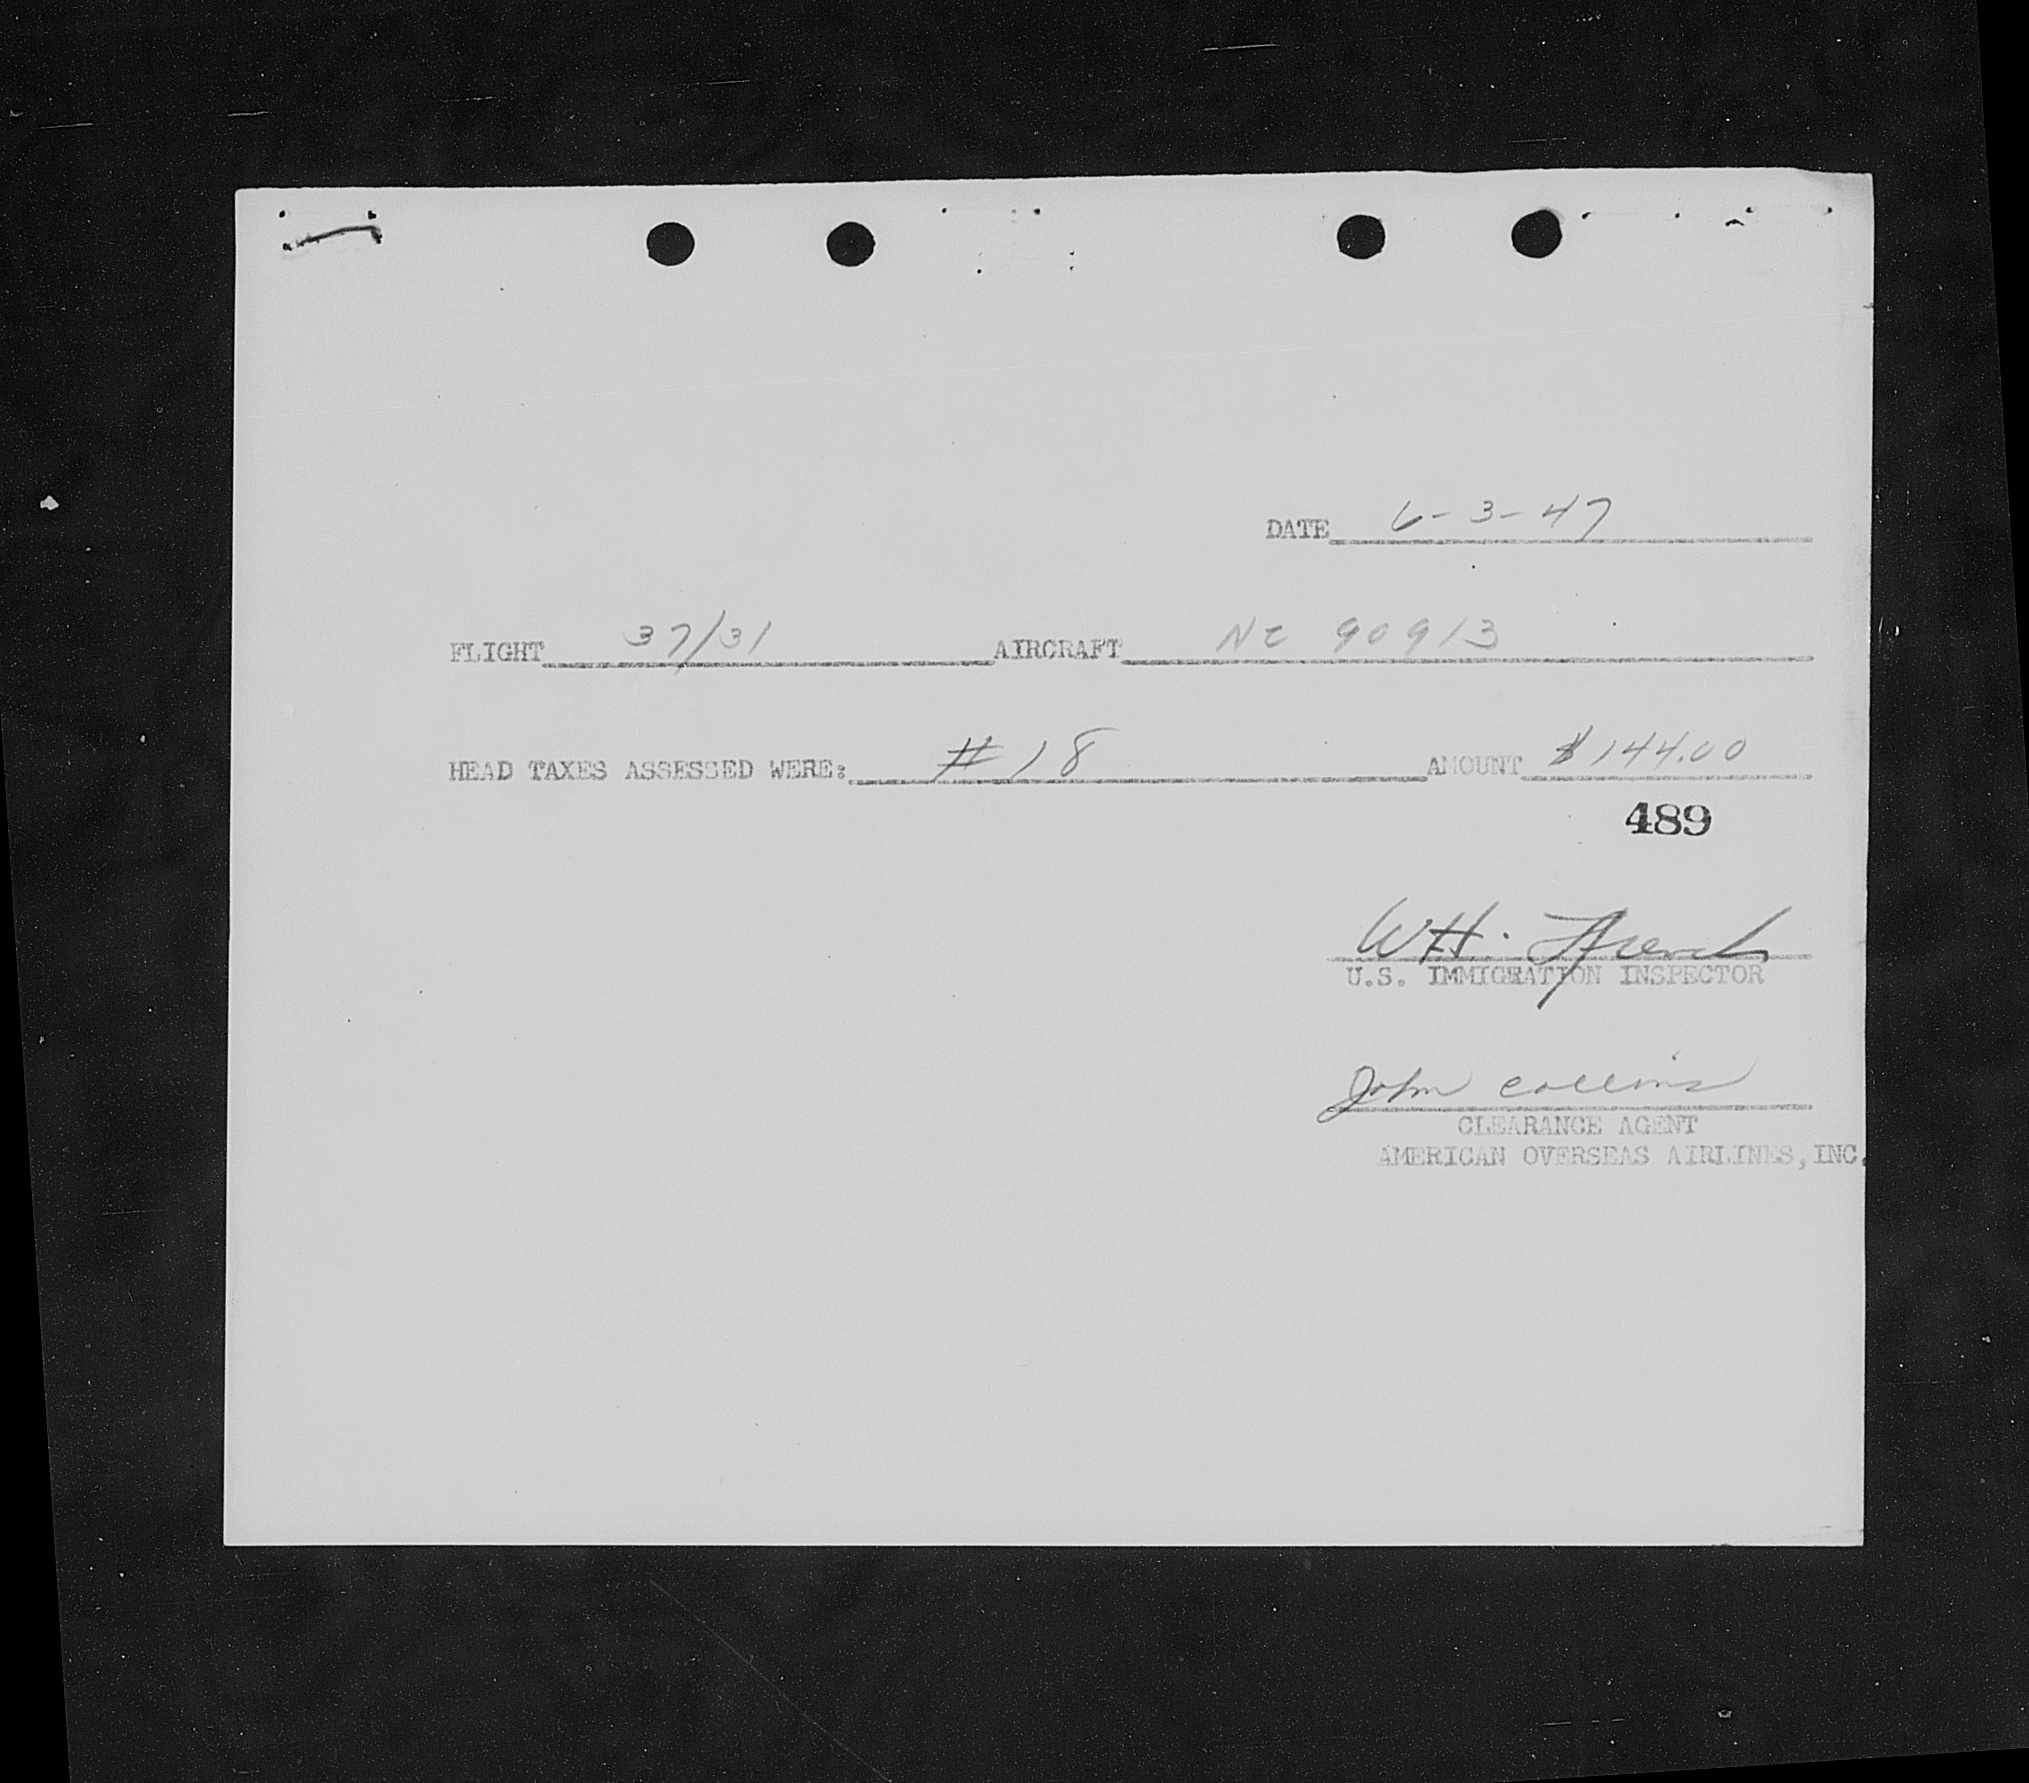 DATE 6-3-47
FLIGHT 37/31 AIRCRAFT NC 90913
HEAD TAXES ASSESSED WERE: # 18 AMOUNT $144.00
489
WH. French
U.S. IMMIGRATION INSPECTOR
John Collins
CLEARANCE AGENT
AMERICAN OVERSEAS AIRLINES, INC.